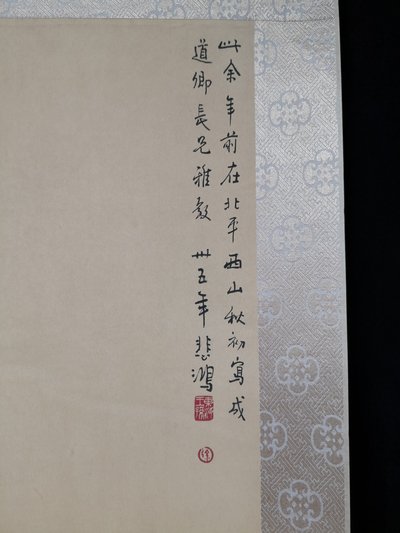 此余年前在北平西山秋初寫成
道卿長兄雅教 卅五年 悲鴻